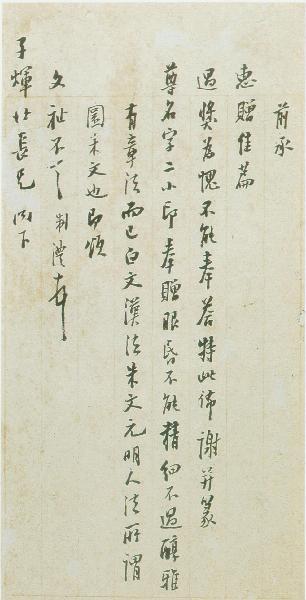 前承
惠贈佳篇
過獎為愧不能奉答特此布謝并篆
尊名字二小印奉贈眼昏不能精細不過醇雅
有章法而已白文漢法朱文元明人法所謂
圓朱文也即頌
文祉不一 制澧 頓
子煇仁長兄 閣下